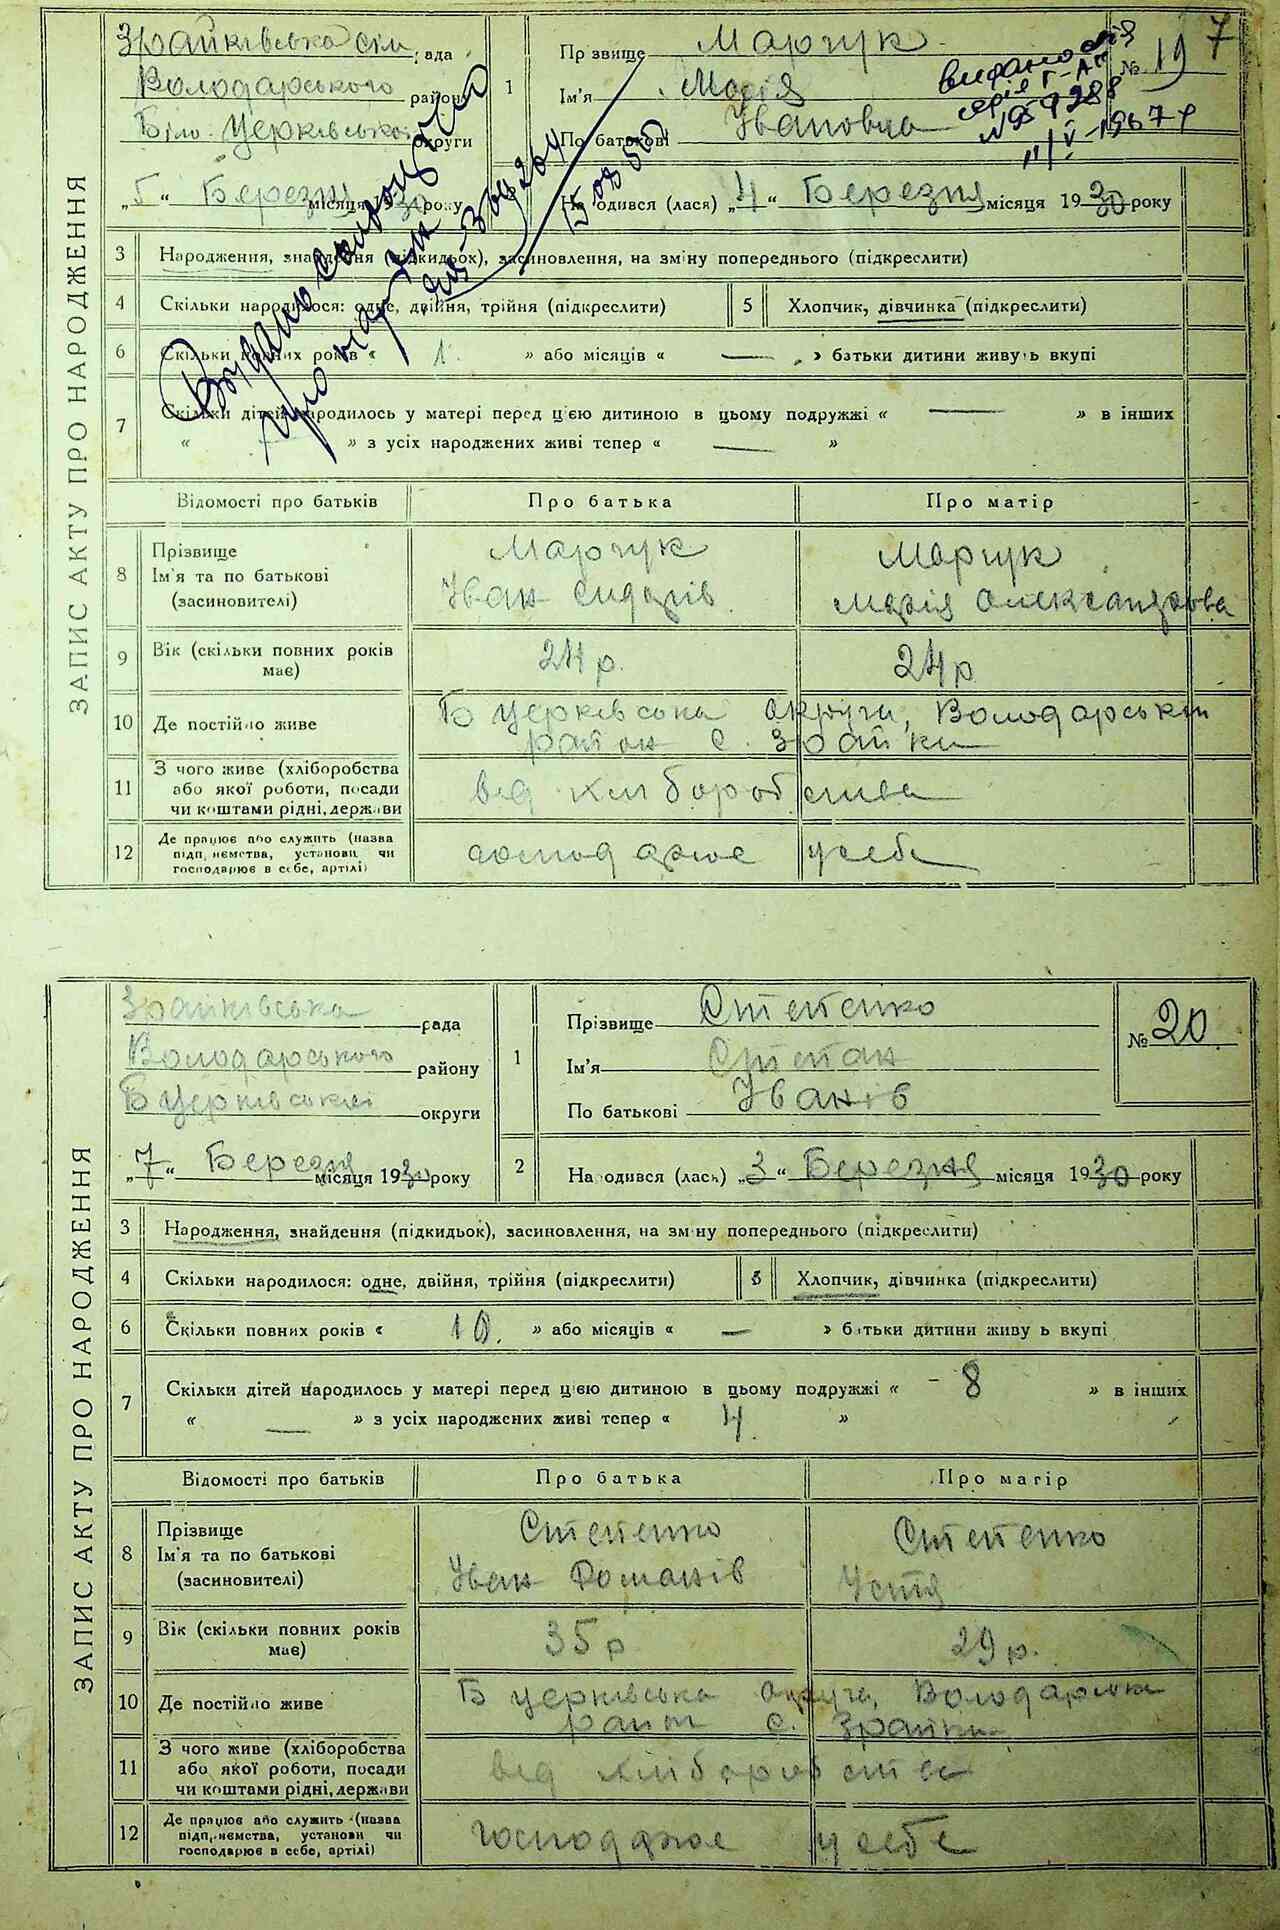 7
ЗАПИС АКТУ ПРО НАРОДЖЕННЯ
Зрайківська сіл. рада
Володарського району
Біло Церківської округи
„5“ Березня місяця 1930 року
1 Прізвище Марчук № 19
Ім'я Марія
По батькові Івановна
видано
серія
1967 р
Народився (лася) „4“ Березня місяця 1930 року
Видано
про
3 Народження, знайдення (підкидьок), засиновлення, на зміну попереднього (підкреслити)
4 Скільки народилося: одне, двійня, трійня (підкреслити) 5 Хлопчик, дівчинка (підкреслити)
6 Скільки повних років « 1 » або місяців « — » батьки дитини живуть вкупі
7 Скільки дітей народилось у матері перед цією дитиною в цьому подружжі « — » в інших
« » з усіх народжених живі тепер « — »
Відомості про батьків Про батька Про матір
8 Прізвище Ім'я та по батькові (засновителі)
Марчук Марчук
Іван Сидорів Марія Олександрова
9 Вік (скільки повних років має) 24 р. 24 р
10 Де постійно живе Б Церківська округа, Володарський
район с. Зрайки
11 З чого живе (хліборобства
або якої роботи, посади від хліборобства
чи коштами рідні, держави
12 Де працює або служить (назва
підприємства, установи чи господарює у себе
господарює в себе, артілі)
ЗАПИС АКТУ ПРО НАРОДЖЕННЯ
Зрайківська рада
Володарського району
Б Церківської округи
„7“ Березня місяця 1930 року
1 Прізвище Степенко № 20
Ім'я Степан
По батькові Іванів
2 Народився (лась) „3“ Березня місяця 1930 року
3 Народження, знайдення (підкидьок), засиновлення, на зміну попереднього (підкреслити)
4 Скільки народилося: одне, двійня, трійня (підкреслити) 5 Хлопчик, дівчинка (підкреслити)
6 Скільки повних років « 10. » або місяців « — » батьки дитини живуть вкупі
7 Скільки дітей народилось у матері перед цією дитиною в цьому подружжі « 8 » в інших
« — » з усіх народжених живі тепер « 4 »
Відомості про батьків Про батька Про матір
8 Прізвище Степенко Степенко
Ім'я та по батькові Іван Романів Устя
(засиновителі)
9 Вік (скільки повних років має) 35 р 29 р.
10 Де постійно живе Б Церківська округа, Володарськ
район с. Зрайки
11 З чого живе (хліборобства
або якої роботи, посади від хліборобства
чи коштами рідні, держави
12 Де працює або служить (назва
підприємства, установи чи господарює у себе
господарює в себе, артілі)